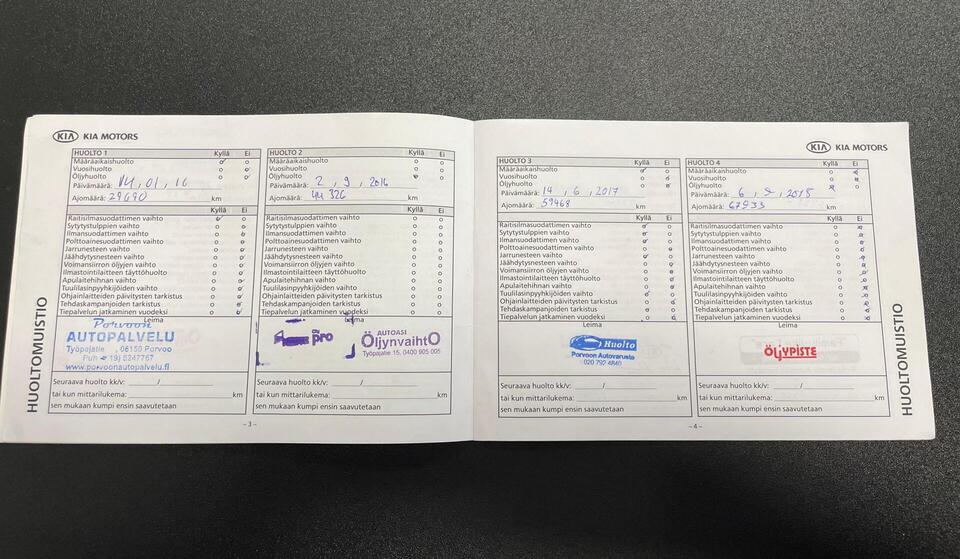 KIA KIA MOTORS
HUOLTO 1 Kyllä Ei
Määräaikaishuolto
Vuosihuolto
Öljyhuolto
Päivämäärä: 14, 01, 16
Ajomäärä: 29690 km
Kyllä Ei
Raitisilmasuodattimen vaihto
Sytytystulppien vaihto
Ilmansuodattimen vaihto
Polttoainesuodattimen vaihto
Jarrunesteen vaihto
Jäähdytysnesteen vaihto
Voimansiirron öljyjen vaihto
Ilmastointilaitteen täyttöhuolto
Apulaitehihnan vaihto
Tuulilasinpyyhkijöiden vaihto
Ohjainlaitteiden päivitysten tarkistus
Tehdaskampanjoiden tarkistus
Tiepalvelun jatkaminen vuodeksi
Leima
Porvoon
AUTOPALVELU
Työpajatie , 06150 Porvoo
Puh 19) 5247767
www.porvoonautopalvelu.fi
Seuraava huolto kk/v: /
tai kun mittarilukema: km
sen mukaan kumpi ensin saavutetaan
HUOLTO 2 Kyllä Ei
Määräaikaishuolto
Vuosihuolto
Öljyhuolto
Päivämäärä: 2, 9, 2016
Ajomäärä: 44 326 km
Kyllä Ei
Raitisilmasuodattimen vaihto
Sytytystulppien vaihto
Ilmansuodattimen vaihto
Polttoainesuodattimen vaihto
Jarrunesteen vaihto
Jäähdytysnesteen vaihto
Voimansiirron öljyjen vaihto
Ilmastointilaitteen täyttöhuolto
Apulaitehihnan vaihto
Tuulilasinpyyhkijöiden vaihto
Ohjainlaitteiden päivitysten tarkistus
Tehdaskampanjoiden tarkistus
Tiepalvelun jatkaminen vuodeksi
Leima
pro
AUTOASI
ÖljynvaihtO
Työpajatie 15, 0400 905 005
Seuraava huolto kk/v: /
tai kun mittarilukema: km
sen mukaan kumpi ensin saavutetaan
HUOLTOMUISTIO
– 3 –
KIA KIA MOTORS
HUOLTO 3 Kyllä Ei
Määräaikaishuolto
Vuosihuolto
Öljyhuolto
Päivämäärä: 14, 6, 2017
Ajomäärä: 59468 km
Kyllä Ei
Raitisilmasuodattimen vaihto
Sytytystulppien vaihto
Ilmansuodattimen vaihto
Polttoainesuodattimen vaihto
Jarrunesteen vaihto
Jäähdytysnesteen vaihto
Voimansiirron öljyjen vaihto
Ilmastointilaitteen täyttöhuolto
Apulaitehihnan vaihto
Tuulilasinpyyhkijöiden vaihto
Ohjainlaitteiden päivitysten tarkistus
Tehdaskampanjoiden tarkistus
Tiepalvelun jatkaminen vuodeksi
Leima
Huolto
Porvoon Autovaruste
020 792 4840
Seuraava huolto kk/v: /
tai kun mittarilukema: km
sen mukaan kumpi ensin saavutetaan
HUOLTO 4 Kyllä Ei
Määräaikaishuolto
Vuosihuolto
Öljyhuolto
Päivämäärä: 6,
Ajomäärä: 67933 km
Kyllä Ei
Raitisilmasuodattimen vaihto
Sytytystulppien vaihto
Ilmansuodattimen vaihto
Polttoainesuodattimen vaihto
Jarrunesteen vaihto
Jäähdytysnesteen vaihto
Voimansiirron öljyjen vaihto
Ilmastointilaitteen täyttöhuolto
Apulaitehihnan vaihto
Tuulilasinpyyhkijöiden vaihto
Ohjainlaitteiden päivitysten tarkistus
Tehdaskampanjoiden tarkistus
Tiepalvelun jatkaminen vuodeksi
Leima
ÖLJYPISTE
Seuraava huolto kk/v: /
tai kun mittarilukema: km
sen mukaan kumpi ensin saavutetaan
HUOLTOMUISTIO
– 4 –